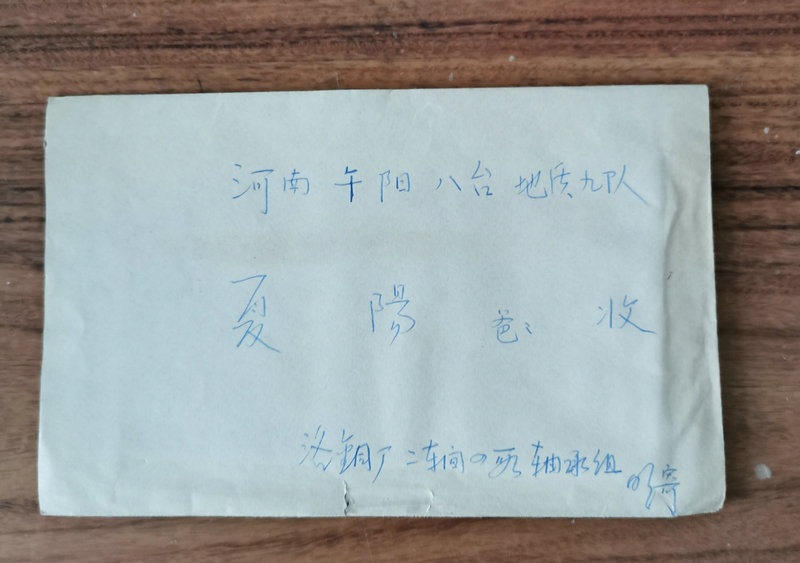 河南 午阳 八台 地质九队
夏 陽 爸〻 收
洛铜厂二车间 轴承组
明寄